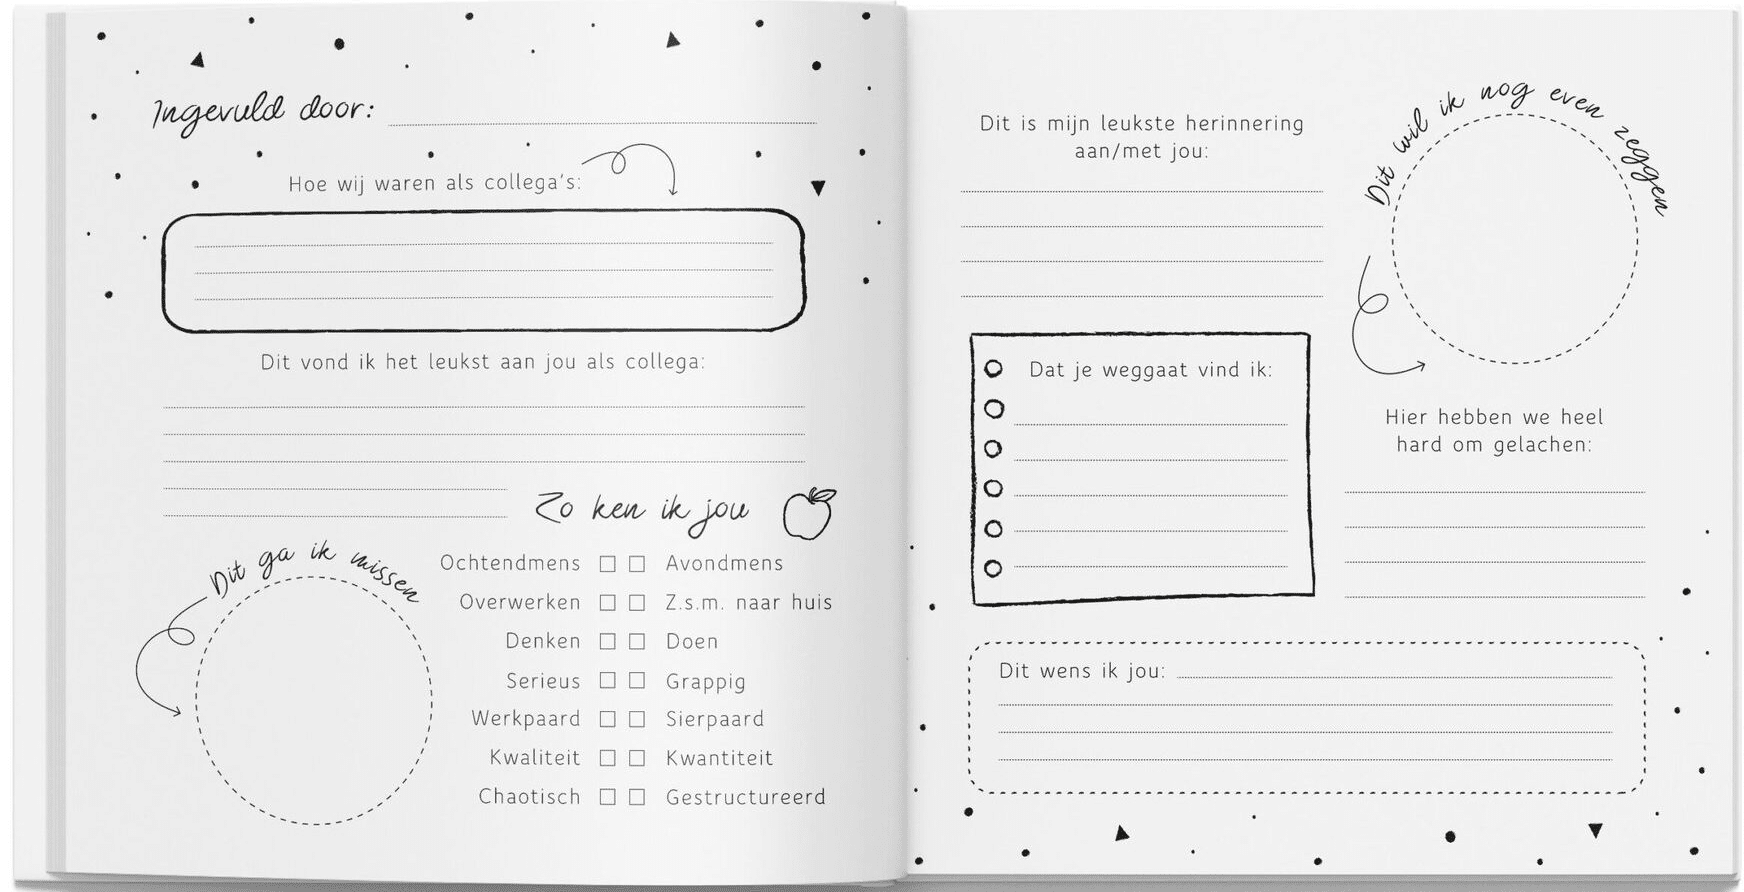 Ingevuld door:
Hoe wij waren als collega's:
Dit vond ik het leukst aan jou als collega:
Zo ken ik jou
Dit ga ik missen
Ochtendmens Avondmens
Overwerken Z.s.m. naar huis
Denken Doen
Serieus Grappig
Werkpaard Sierpaard
Kwaliteit Kwantiteit
Chaotisch Gestructureerd
Dit is mijn leukste herinnering
aan/met jou:
Dit wil ik nog even zeggen
Dat je weggaat vind ik:
Hier hebben we heel
hard om gelachen:
Dit wens ik jou: